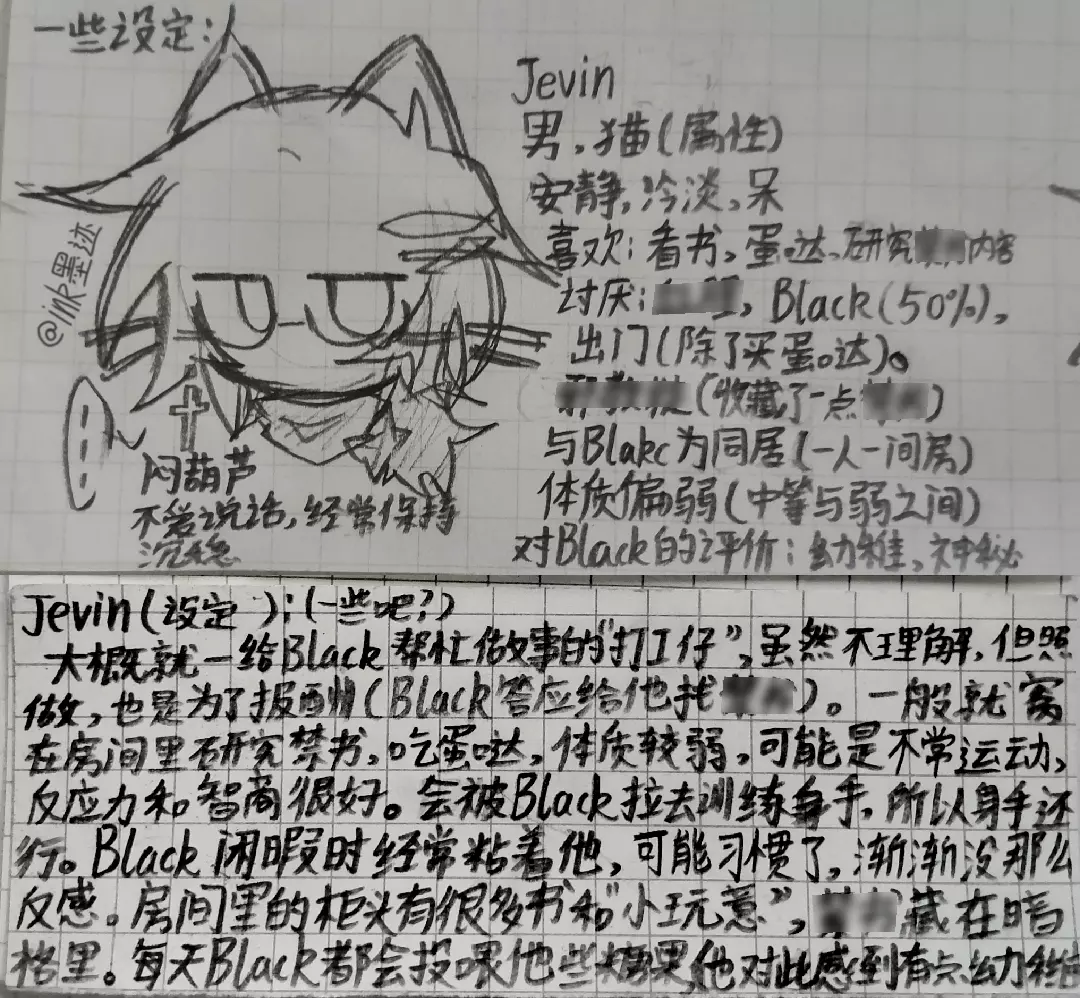 一些设定:
Jevin
男,猫(属性)
安静,冷淡,呆
喜欢:看书、蛋哒、研究内容
讨厌:,Black(50%),
出门(除了买蛋哒)。
(收藏了一点)
与Blakc为同居(一人一间房)
体质偏弱(中等与弱之间)
对Black的评价:幼稚,神秘
@ink墨迹
闷葫芦
不爱说话,经常保持
沉稳
Jevin(设定):(一些吧?)
大概就一给Black帮忙做事的“打工仔”,虽然不理解,但照
做,也是为了报酬(Black答应给他找)。一般就窝
在房间里研究禁书,吃蛋哒,体质较弱,可能是不常运动,
反应力和智商很好。会被Black拉去训练身手,所以身手还
行。Black闲暇时经常粘着他,可能习惯了,渐渐没那么
反感。房间里的柜头有很多书和“小玩意”,藏在暗
格里。每天Black都会投喂他些糖果,他对此感到有点幼稚